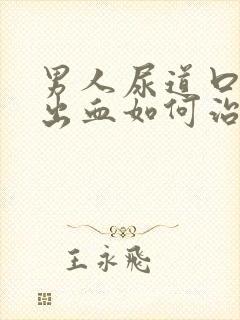 男人尿道口
出血如何治
王永飛